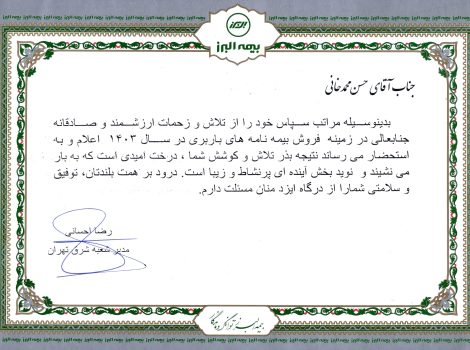 البرز
بیمه البرز
جناب آقای حسن محمدخانی
بدینوسیله مراتب سپاس خود را از تلاش و زحمات ارزشمند و صادقانه
جنابعالی در زمینه فروش بیمه نامه های باربری در سال ۱۴۰۳ اعلام و به
استحضار می رساند نتیجه بذر تلاش و کوشش شما ، درخت امیدی است که به بار
می نشیند و نوید بخش آینده ای پرنشاط و زیبا است. درود بر همت بلندتان، توفیق
و سلامتی شمارا از درگاه ایزد منان مسئلت دارم.
رضا احسانی
مدیر شعبه شرق تهران